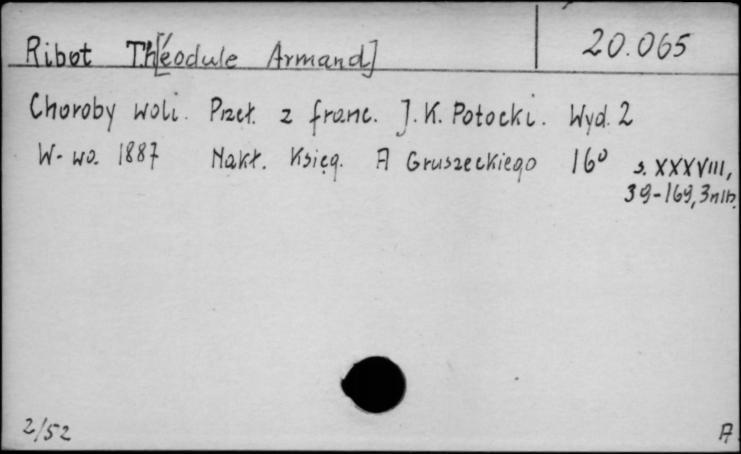 Ribot Th[éodule Armand] 20.065
Choroby woli. Przeł. z franc. J. K. Potocki. Wyd. 2
W-wa. 1887 Nakł. Księg. A Gruszeckiego 16° s. XXXVIII,
39-169, 3nlb.
2/52 A